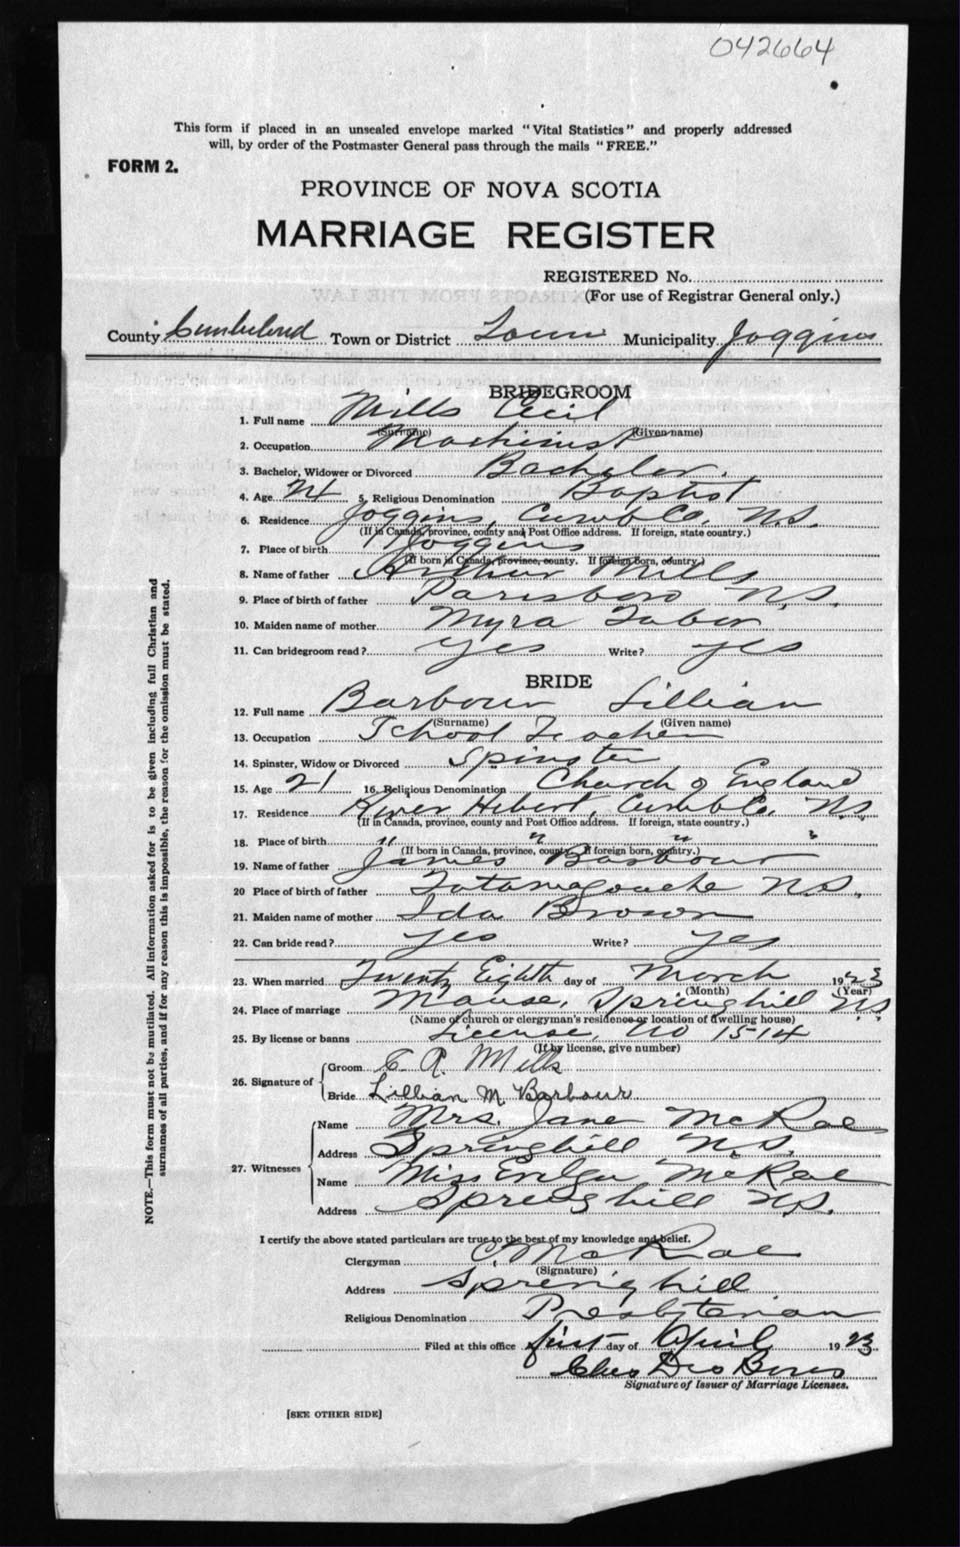 042664
This form if placed in an unsealed envelope marked "Vital Statistics" and properly addressed
will, by order of the Postmaster General pass through the mails "FREE."
FORM 2.
PROVINCE OF NOVA SCOTIA
MARRIAGE REGISTER
REGISTERED No.
(For use of Registrar General only.)
County Cumberland Town or District Town Municipality Joggins
BRIDEGROOM
1. Full name Mills Cecil
(Surname) (Given name)
2. Occupation Machinist
3. Bachelor, Widower or Divorced Bachelor.
4. Age 24 5. Religious Denomination Baptist
6. Residence Joggins, Cumb Co. N.S.
(If in Canada, province, county and Post Office address. If foreign, state country.)
7. Place of birth Joggins
(If born in Canada, province, county. If foreign born, country.)
8. Name of father Arthur Mills
9. Place of birth of father Parrsboro N.S.
10. Maiden name of mother Myra Tabor
11. Can bridegroom read? Yes Write? Yes
BRIDE
12. Full name Barbour Lillian
(Surname) (Given name)
13. Occupation School Teacher
14. Spinster, Widow or Divorced Spinster
15. Age 21 16. Religious Denomination Church of England
17. Residence River Hebert, Cumb Co. N.S.
(If in Canada, province, county and Post Office address. If foreign, state country.)
18. Place of birth " " "
(If born in Canada, province, county. If foreign born, country.)
19. Name of father James Barbour
20 Place of birth of father Tatamagouche N.S.
21. Maiden name of mother Ida Brown
22. Can bride read? Yes Write? Yes
23. When married Twenty Eighth day of March 1923
(Month) (Year)
24. Place of marriage Manse, Springhill N.S.
(Name of church or clergyman's residence or location of dwelling house)
25. By license or banns License, No 1514
(If by license, give number)
26. Signature of
Groom C. R. Mills
Bride Lillian M. Barbour
27. Witnesses
Name Mrs. Jane McRae
Address Springhill N.S.
Name Miss McRae
Address Springhill N.S.
I certify the above stated particulars are true to the best of my knowledge and belief.
Clergyman C. McRae
(Signature)
Address Springhill
Religious Denomination Presbyterian
Filed at this office first day of April 1923
Signature of Issuer of Marriage Licenses.
[SEE OTHER SIDE]
NOTE.—This form must not be mutilated. All information asked for is to be given including full Christian and
surnames of all parties, and if for any reason this is impossible, the reason for the omission must be stated.